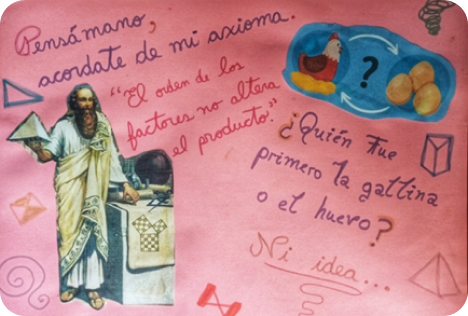 Pensámano,
acordate de mi axioma.
"El orden de los
factores no altera
el producto."
?
¿Quién fue
primero la gallina
o el huevo?
Ni idea...